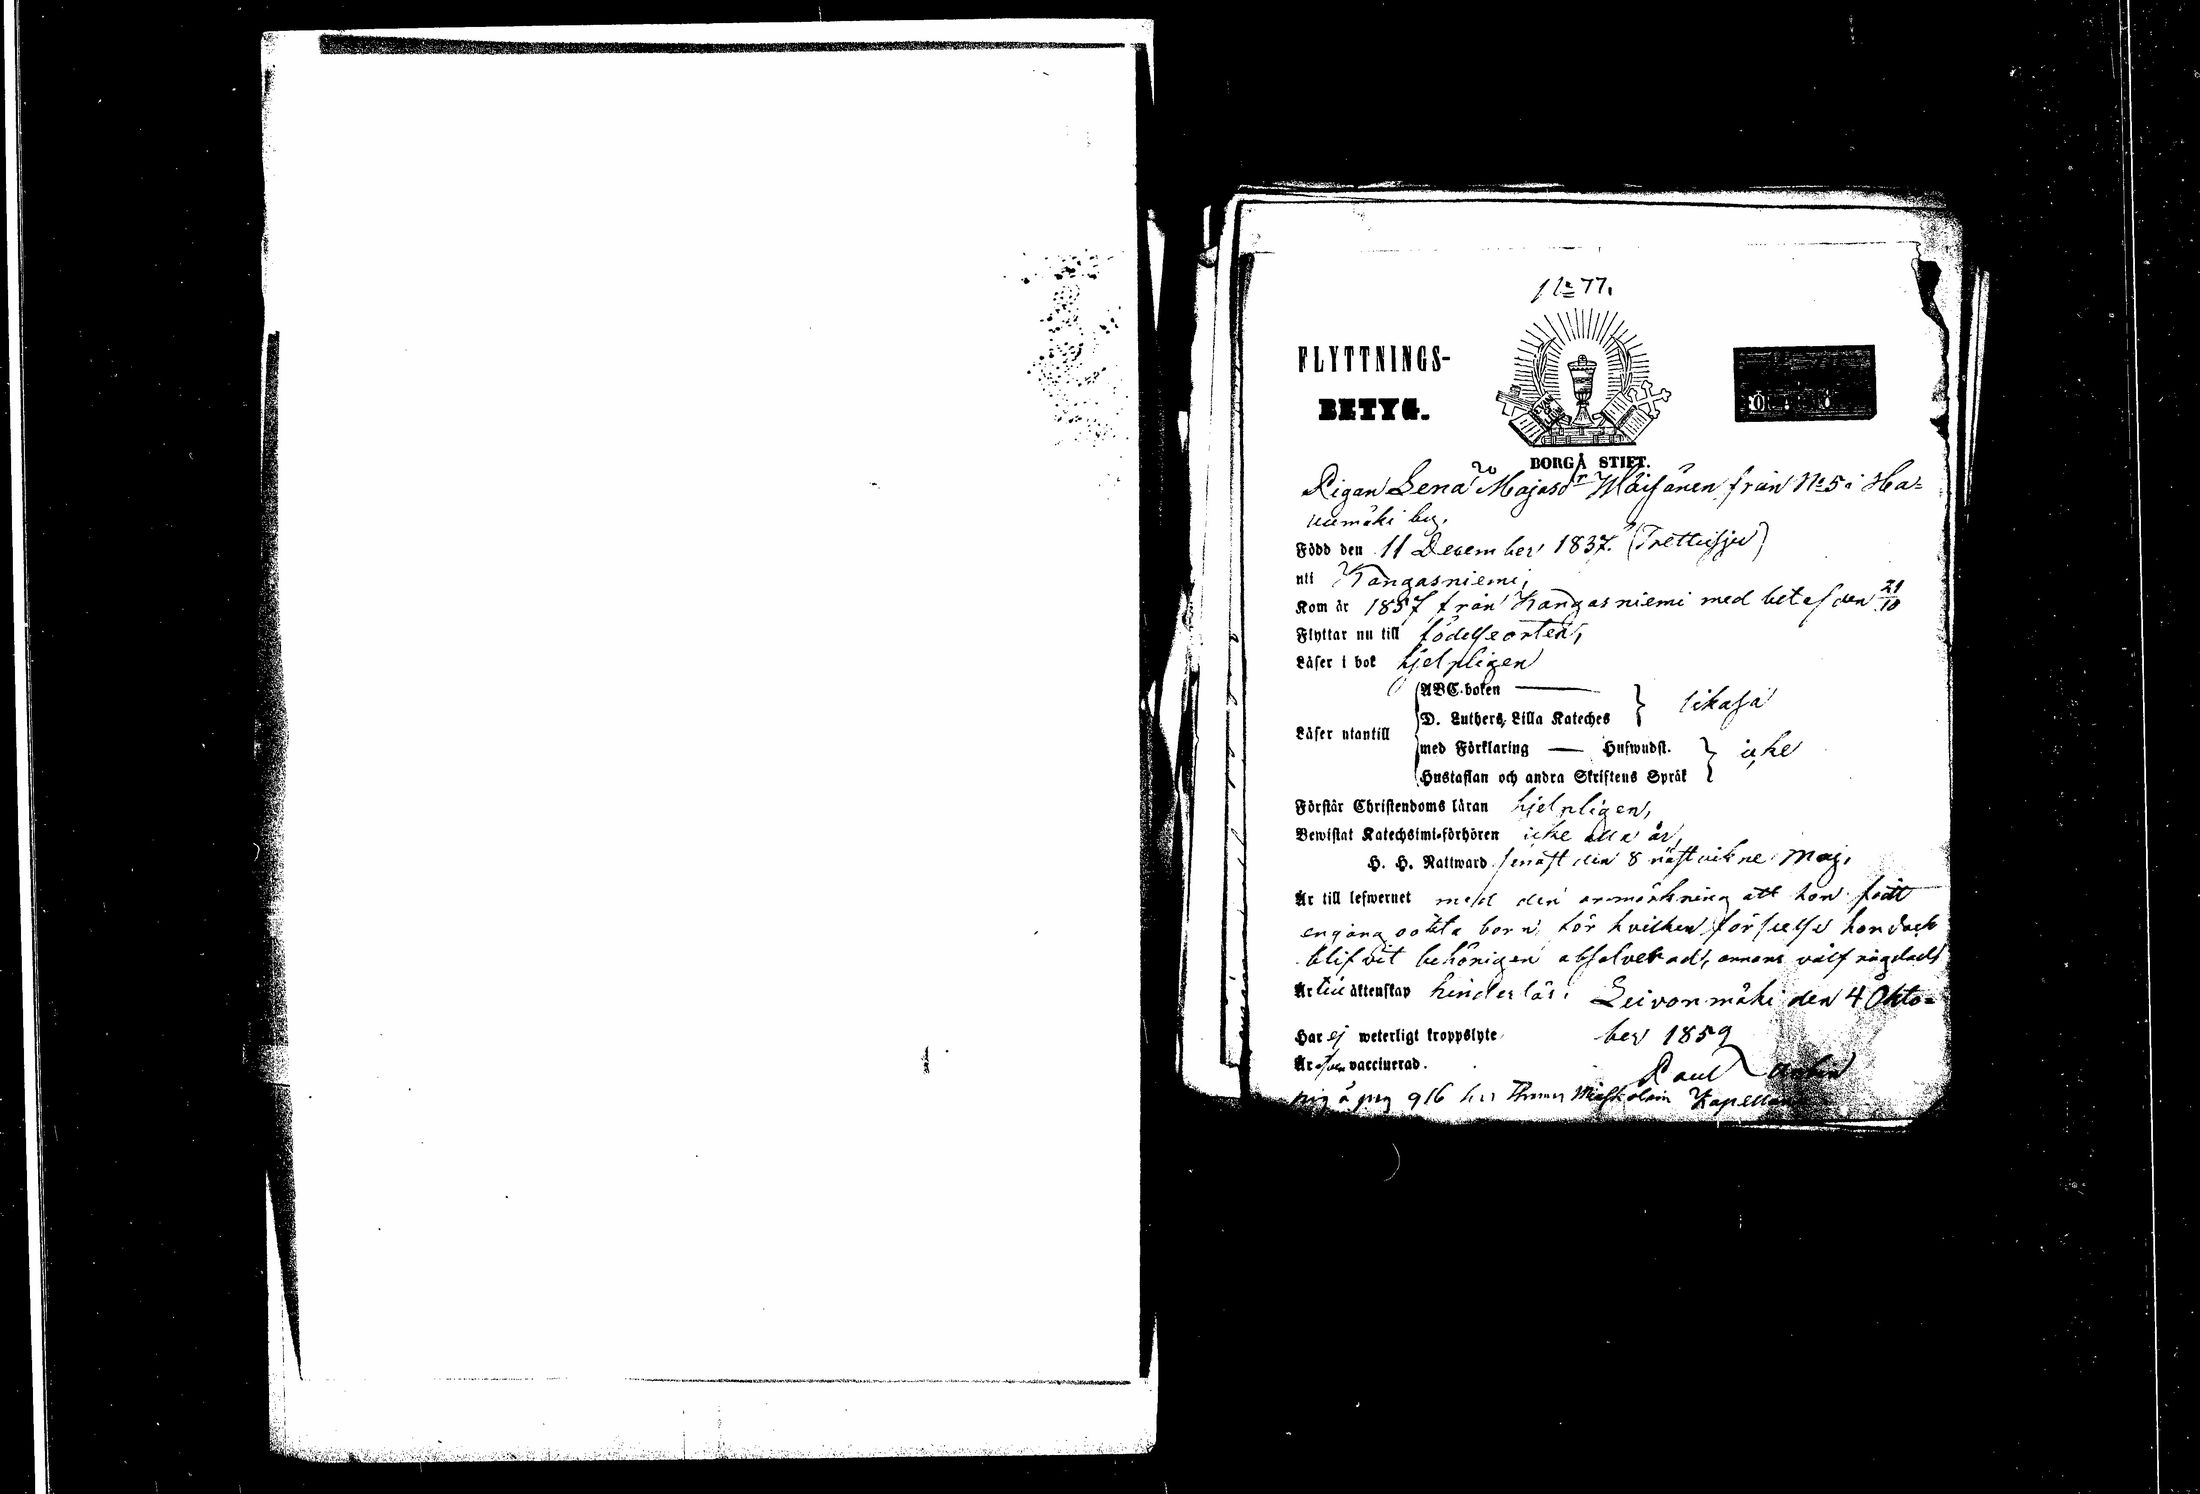 No 77.
FLYTTNINGS-
BETYG.
BORGÅ STIFT.
Pigan Lena Majasdr Mäisänen från No 5 i Ha-
numäki by.
Född den 11 December 1837. (Trettiosju)
uti Kangasniemi,
Kom år 1857 från Kangasniemi med bet af den 21/10
Flyttar nu till födelseorten,
Läser i bok hjelpligen
ABC-boken
D. Luthers Lilla Kateches
likaså
Läser utantill
med Förklaring — Huswudst.
Hustaflan och andra Skriftens Språk
icke
Förstår Christendoms läran hjelpligen,
Bewistat Katechsimi-förhören icke alla år,
H. H. Nattward senast den 8 nästvikne Maj.
Är till lefwernet med den anmärkning att hon födt
engång oäkta barn, för hvilken förseelse hon dock
blifvit behörigen absolverad, annars välfrägdad
Är till äktenskap hinderlös. Leivonmäki den 4 Okto-
ber 1859
Har ej weterligt kroppslyte
Är vaccinerad.
Paul
pig å pag 916 hos Thomas Kapellan